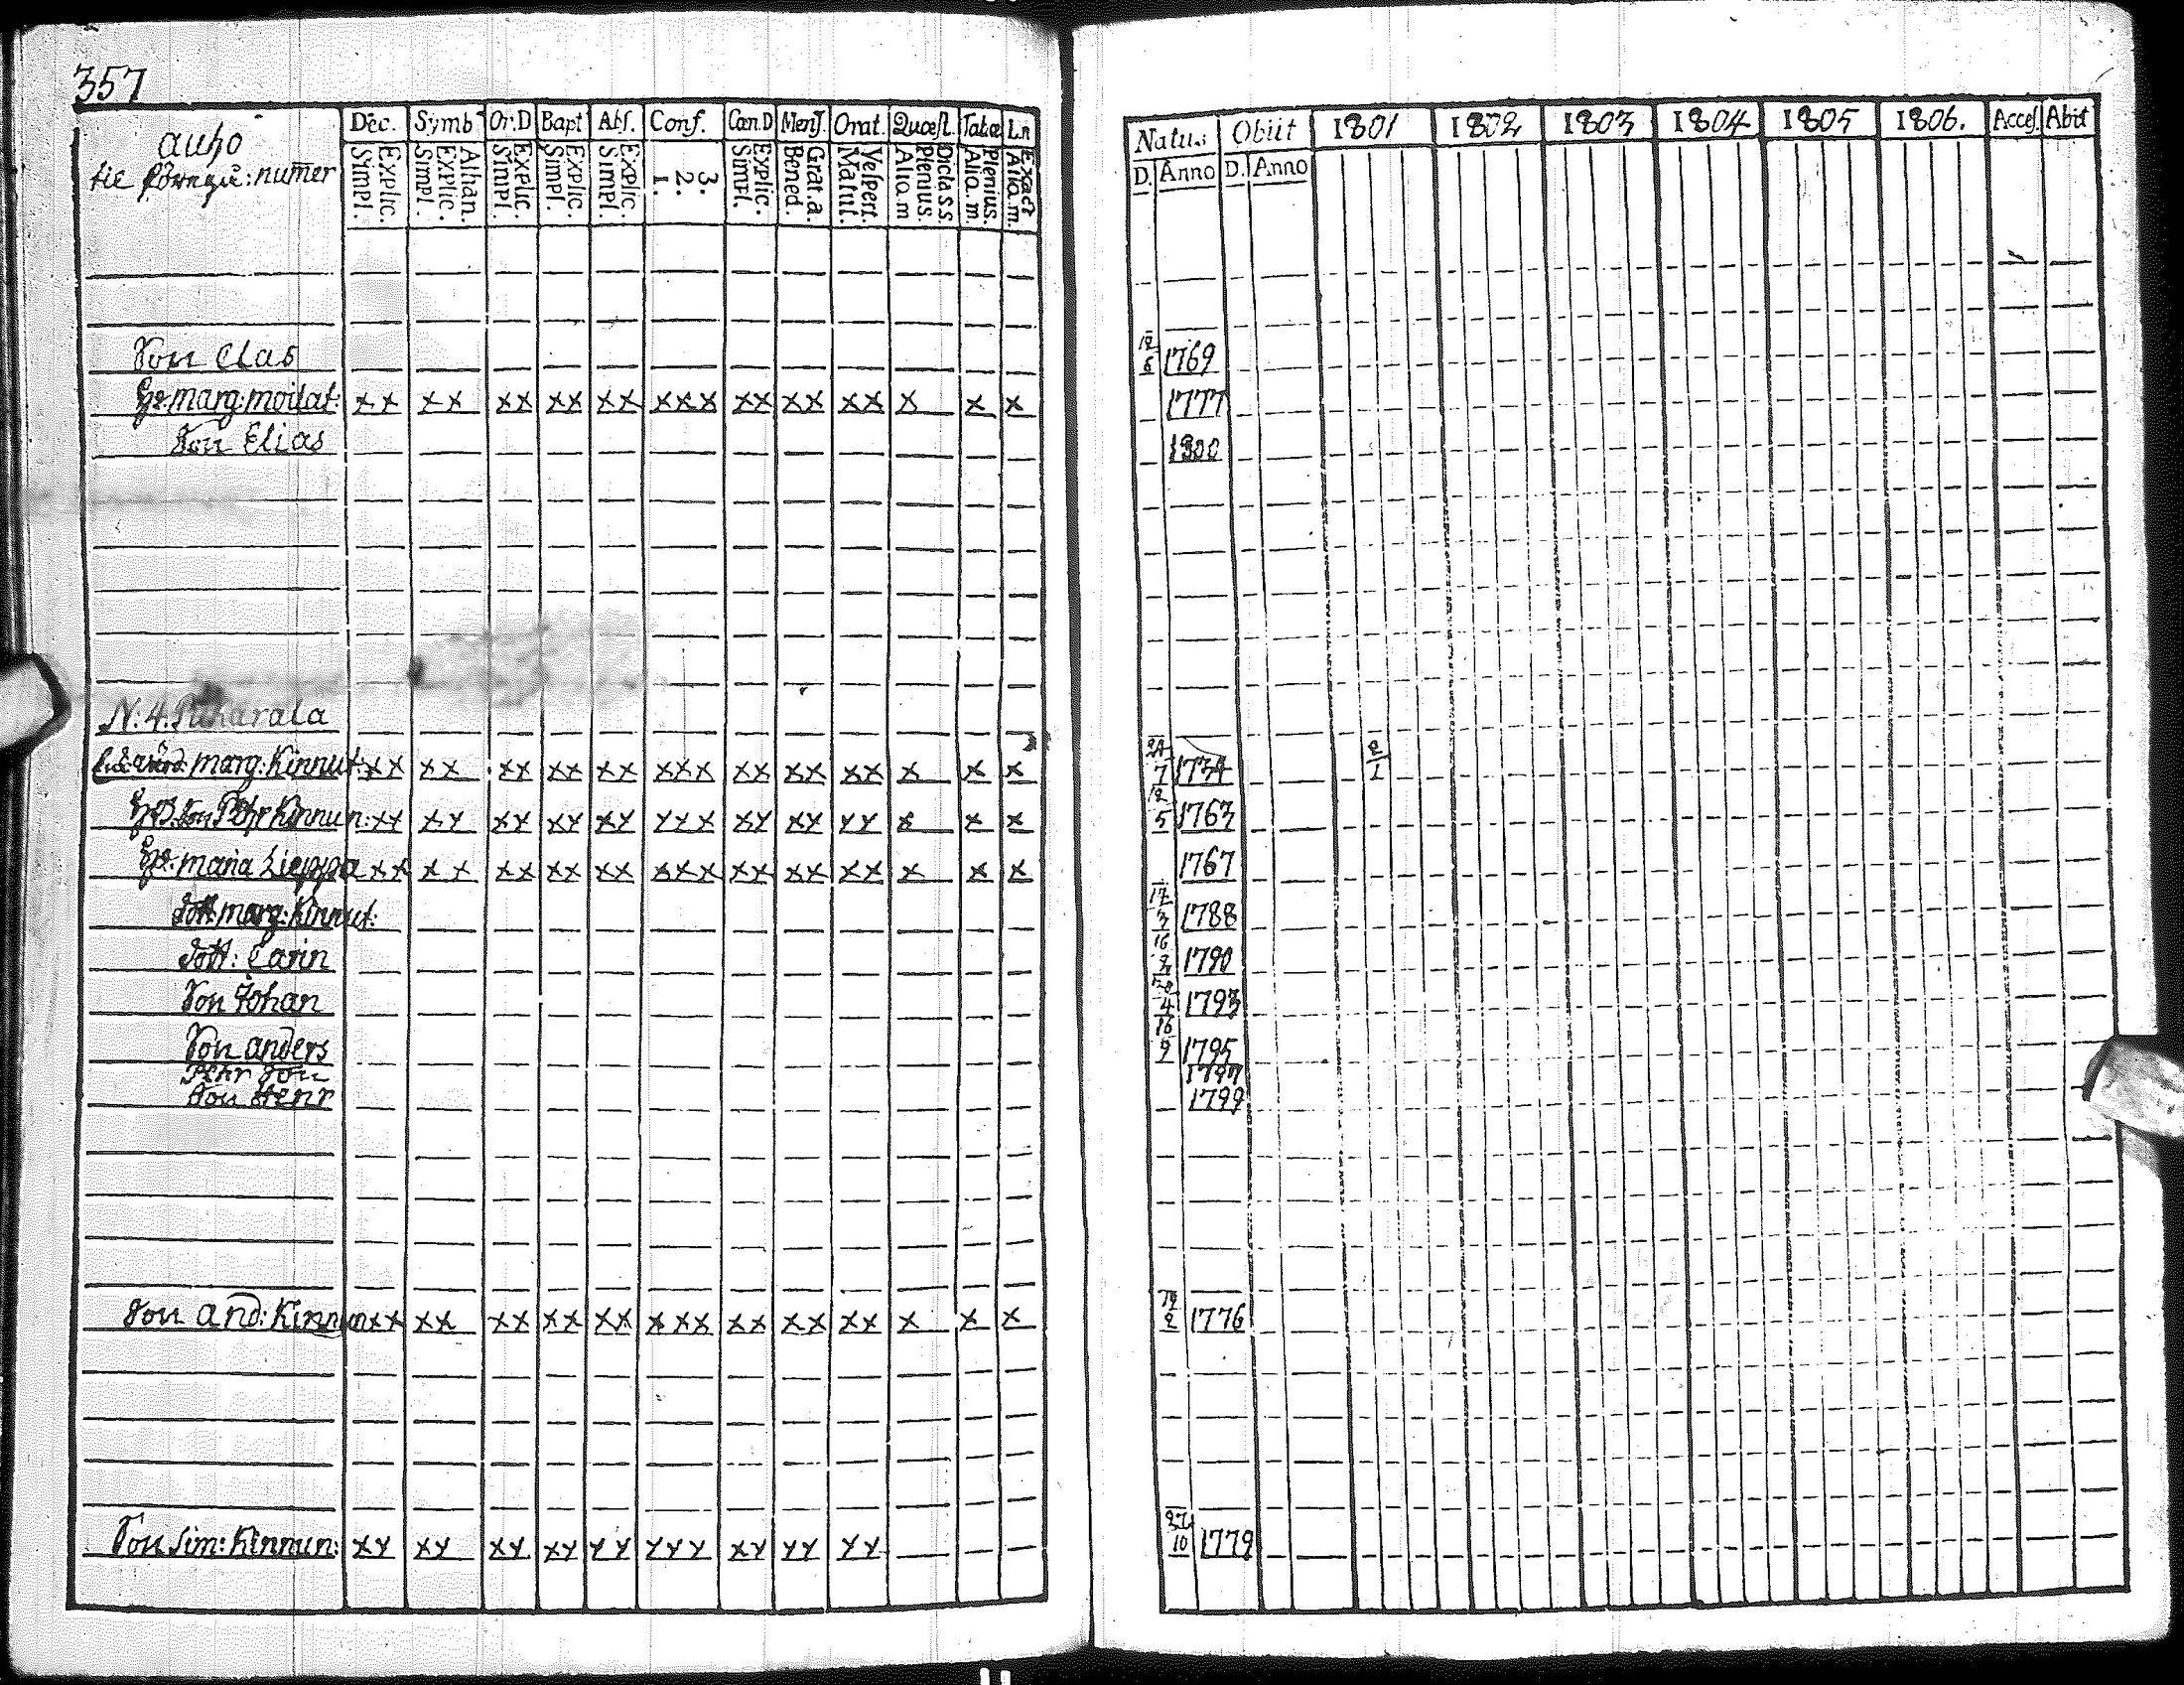 357
auho
tie föregu: numer
Dec. Symb Or:D Bapt Abs. Conf. Cæn.D Mens. Orat. Quæst. Tabæ Ln
Explic. Simpl. Athan. Explic. Simpl. Explic. Simpl. Explic. Simpl. Explic. Simpl. 3. 2. 1. Explic. Simpl. Grat.a. Bened. Vespert. Matut. Dicta s.s. Plenius. Alio.m Plenius. Alio.m. Exact Alio.m.
Natus Obiit 1801 1802 1803 1804 1805 1806. Acces. Abiit
D. Anno D. Anno
Son Clas 12/6 1769
marg: moilat: xx xx xx xx xx xxx xx xx xx x x x 1777
Son Elias 1800
N: 4.
marg: Kinnut: xx xx xx xx xx xxx xx xx xx x x x 24/7 1734 2/1
Son Pehr Kinnun: xx xx xx xx xx xxx xx xx xx x x x 12/5 1763
maria Lieppa xx xx xx xx xx xxx xx xx xx x x x 1767
dott: marg: Kinnut: 17/3 1788
dott: Carin 16/2 1790
Son Johan 1793
Son anders 16/9 1795
Pehr Son 1797
Son Henr 1799
Son And: Kinnun xx xx xx xx xx xxx xx xx xx x x x 1776
Son Sim: Kinnun: xx xx xx xx xx xxx xx xx xx 1779